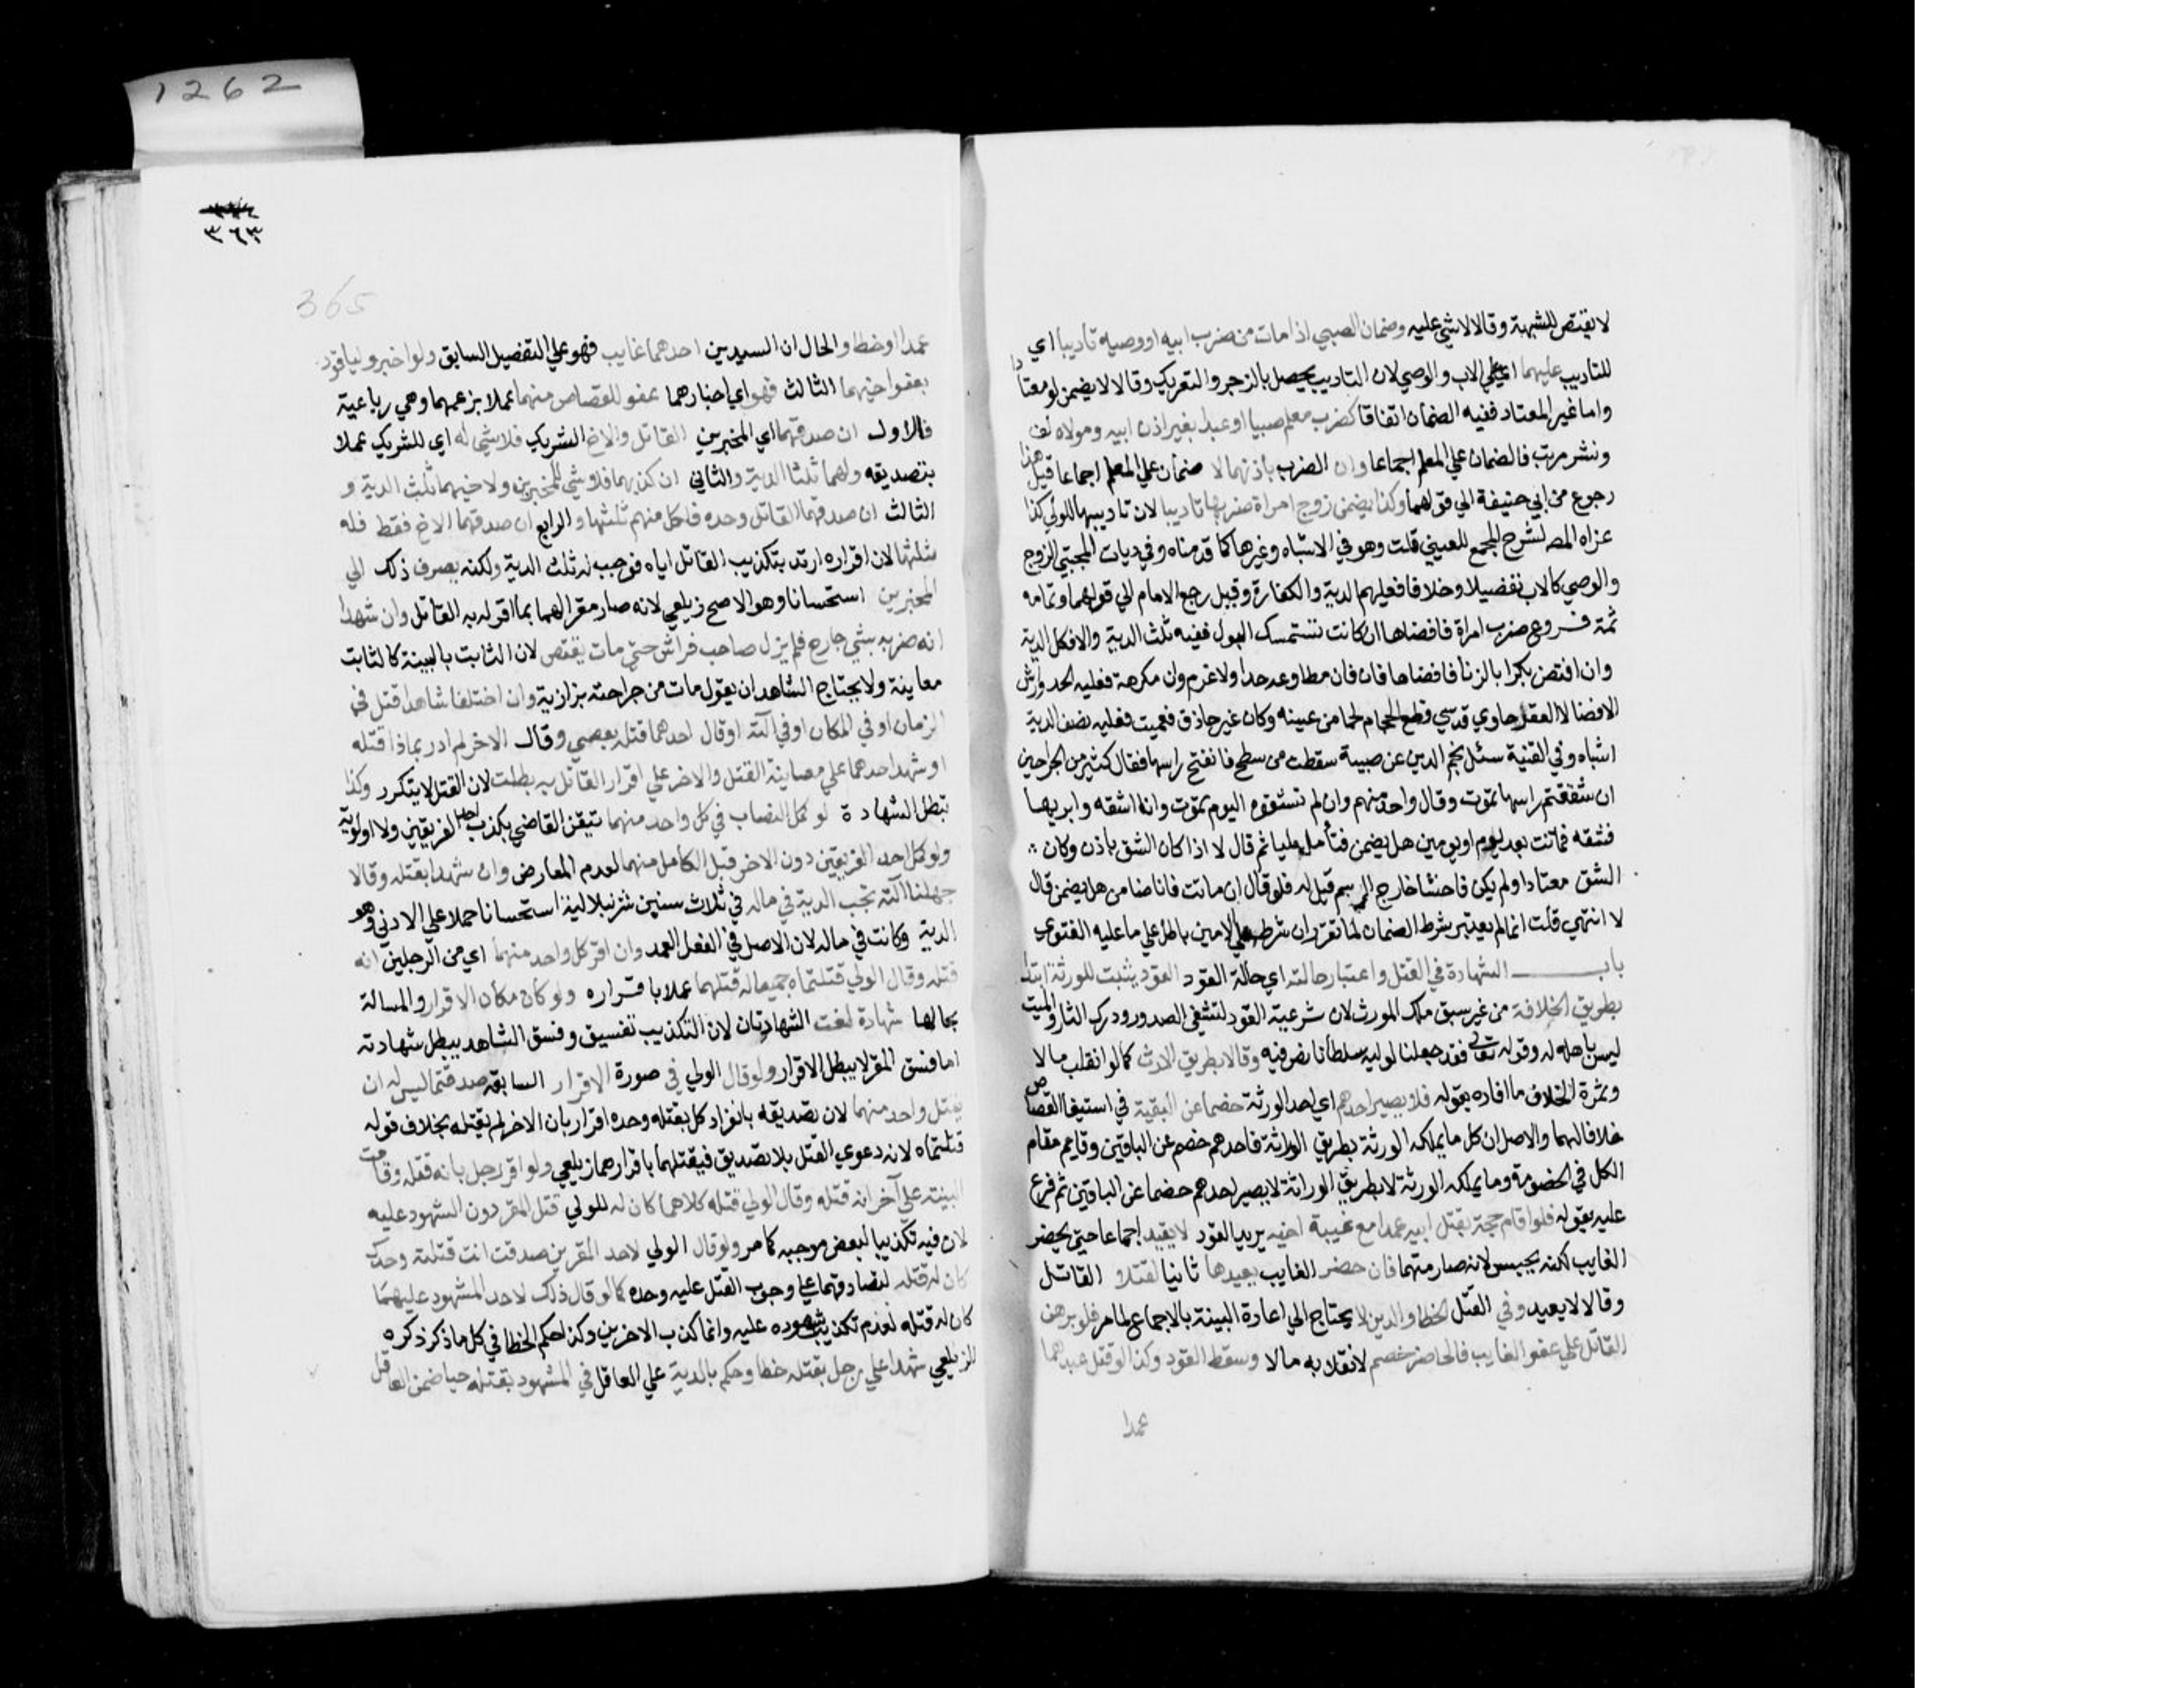 لا يقتص للشبهة وقالا لا شي عليه وضمان الصبي اذا مات من ضرب ابيه او وصيه تاديبا اي
للتاديب عليهما اي علي الاب والوصي لان التاديب يحصل بالزجر والتعريك وقالا لا يضمن لو معتادا
واما غير المعتاد ففيه الضمان اتفاقا كضرب معلم صبيا او عبدا بغير اذن ابيه ومولاه لف
ونشر مرتب فالضمان علي المعلم اجماعا وان الضرب باذنهما لا ضمان علي المعلم اجماعا قيل هذا
رجوع من ابي حنيفة الي قولهما وكذا يضمن زوج امراة ضربها تاديبا لان تاديبها للولي كذا
عزاه المص لشرح المجمع للعيني قلت وهو في الاشباه وغيرها كما قدمناه وفي ديات المجتبي الزوج
والوصي كالاب تفصيلا وخلافا فعليهم الدية والكفارة وقيل رجع الامام الي قولهما وتمامه
ثمة فروع ضرب امراة فافضاها ان كانت تستمسك البول ففيه ثلث الدية والا فكل الدية
وان افتض بكرا بالزنا فافضاها فان مطاوعه حدا ولا غرم وان مكرهة فعليه الحد وارش
الافضا لا العقر حاوي قدسي قطع الحجام لحما من عينه وكان غير حاذق فعميت فعليه نصف الدية
اشباه وفي القنية سئل نجم الدين عن صبية سقطت من سطح فانفتح راسها فقال كثير من الجراحين
ان شققتم راسها تموت وقال واحد منهم وان لم تشقوه اليوم تموت وانا اشقه وابريها
فشقه فماتت بعد يوم او يومين هل يضمن فتأمل مليا ثم قال لا اذا كان الشق باذن وكان
الشق معتادا ولم يكن فاحشا خارج الرسم قيل له فلو قال ان ماتت فانا ضامن هل يضمن قال
لا انتهي قلت انما لم يعتبر شرط الضمان لما تقرر ان شرطه علي الامين باطل علي ما عليه الفتوي
باب الشهادة في القتل واعتبار حالته اي حالة القود القود يثبت للورثة ابتدا
بطريق الخلافة من غير سبق ملك المورث لان شرعية القود لتشفي الصدور ودرك الثار والميت
ليس باهله له وقوله تعالي فقد جعلنا لوليه سلطانا نص فيه وقالا بطريق الارث كما لو انقلب مالا
وثمرة الخلاف ما افاده بقوله فلا يصير احدهم اي احد الورثة خصما عن البقية في استيفا القصاص
خلافا لهما والاصل ان كل ما يملكه الورثة بطريق الوراثة فاحدهم خصم عن الباقين وقايم مقام
الكل في الخصومة وما يملكه الورثة لا بطريق الوراثة لا يصير احدهم خصما عن الباقين ثم فرع
عليه بقوله فلو اقام حجة بقتل ابيه عمدا مع غيبة اخيه يريد القود لا يقيد اجماعا حتي يحضر
الغايب لكنه يحبس لانه صار متهما فان حضر الغايب يعيدها ثانيا لقتلا القاتل
وقالا لا يعيد وفي القتل الخطا والدين لا يحتاج الي اعادة البينة بالاجماع لما مر فلو برهن
القاتل علي عفو الغايب فالحاضر خصم لانقلابه مالا وسقط القود وكذا لو قتل عبدهما
عمدا
1262
٣٦٣
365
عمدا او خطا والحال ان السيدين احدهما غايب فهو علي التفصيل السابق ولو اخبر وليا قود
بعفو اخيهما الثالث فهو اي اخبارهما عفو للقصاص منهما عملا بزعمهما وهي رباعية
فالاول ان صدقهما اي المخبرين القاتل والاخ الشريك فلا شي له اي للشريك عملا
بتصديقه ولهما ثلثا الدية والثاني ان كذبهما فلا شي للمخبرين ولاخيهما ثلث الدية و
الثالث ان صدقهما القاتل وحده فلكل منهم ثلثها والرابع ان صدقهما الاخ فقط فله
ثلثها لان اقراره ارتد بتكذيب القاتل اياه فوجب له ثلث الدية ولكنه يصرف ذلك الي
المخبرين استحسانا وهو الاصح زيلعي لانه صار مقرا لهما بما اقر له به القاتل وان شهدا
انه ضربه بشي جارح فلم يزل صاحب فراش حتي مات يقتص لان الثابت بالبينة كالثابت
معاينة ولا يحتاج الشاهد ان يقول مات من جراحته بزازية وان اختلفا شاهدا قتل في
الزمان او في المكان او في آلته او قال احدهما قتله بعصي وقال الاخر لم ادر بماذا قتله
او شهد احدهما علي معاينة القتل والاخر علي اقرار القاتل به بطلت لان القتل لا يتكرر وكذا
تبطل الشهادة لو كمل النصاب في كل واحد منهما لتيقن القاضي بكذب احد الفريقين ولا اولوية
ولو كمل احد الفريقين دون الاخر قبل الكامل منهما لعدم المعارض وان شهدا بقتله وقالا
جهلنا آلته تجب الدية في ماله في ثلاث سنين شرنبلالية استحسانا حملا علي الادني وهو
الدية وكانت في ماله لان الاصل في الفعل العمد وان اقر كل واحد منهما اي من الرجلين انه
قتله وقال الولي قتلتماه جميعا له قتلهما عملا باقراره ولو كان مكان الاقرار والمسالة
بحالها شهادة لغت الشهادتان لان التكذيب تفسيق وفسق الشاهد يبطل شهادته
اما فسق المقر لا يبطل الاقرار ولو قال الولي في صورة الاقرار السابقة صدقتما ليس له ان
يقتل واحد منهما لان تصديقه بانفراد كل بقتله وحده اقرار بان الاخر لم يقتله بخلاف قوله
قتلتماه لانه دعوي القتل بلا تصديق فيقتلهما باقرارهما زيلعي ولو اقر رجل بانه قتله وقامت
البينة علي آخر انه قتله وقال الولي قتله كلاهما كان له للولي قتل المقر دون الشهود عليه
لان فيه تكذيبا لبعض موجبه كما مر ولو قال الولي لاحد المقرين صدقت انت قتلته وحدك
كان له قتله لتصادقهما علي وجوب القتل عليه وحده كما لو قال ذلك لاحد المشهود عليهما
كان له قتله لعدم تكذيب شهوده عليه وانما كذب الاخرين وكذا حكم الخطا في كل ما ذكر ذكره
الزيلعي شهدا علي رجل بقتله خطا وحكم بالدية علي العاقل في المشهود بقتله حيا ضمن العاقل